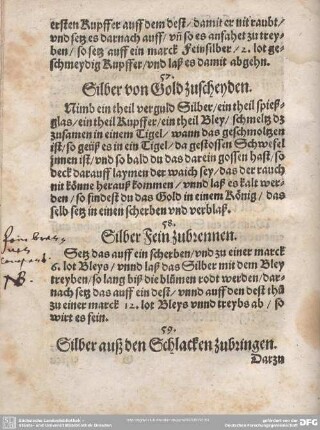 ersten Kupffer auff dem dest/ damit er nit raubt/
vnd setz es darnach auff/ vn̄ so es anfahet zu trey-
ben/ so setz auff ein marck Feinsilber/ 2. lot ge-
schmeydig Kupffer/ vnd laß es damit abgehn.
57.
Silber von Gold zuscheyden.
Nimb ein theil verguld Silber/ ein theil spieß-
glas/ ein theil Kupffer/ ein theil Bley/ schmeltz dz
zusamen in einem Tigel/ wann das geschmoltzen
ist/ so geüß es in ein Tigel/ da gestossen Schwefel
innen ist/ vnd so bald du das darein gossen hast/ so
deck darauff laymen der waich sey/ das der rauch
nit könne herauß kommen/ vnnd laß es kalt wer-
den/ so findest du das Gold in einem König/ das
selb setz in einen scherben vnd verblaß.
58.
Silber Fein zubrennen.
Setz das auff ein scherben/ vnd zu einer marck
6. lot Bleys/ vnnd laß das Silber mit dem Bley
treyben/ so lang biß die blůmen rodt werden/ dar-
nach setz das auff ein dest/ vnnd auff den dest thů
zu einer marck 12. lot Bleys vnnd treybs ab/ so
wirt es fein.
NB.
59.
Silber auß den Schlacken zubringen.
Darzu
Sächsische Landesbibliothek
Staats- und Universitätsbibliothek Dresden
gefördert von der
Deutschen Forschungsgemeinschaft
DFG